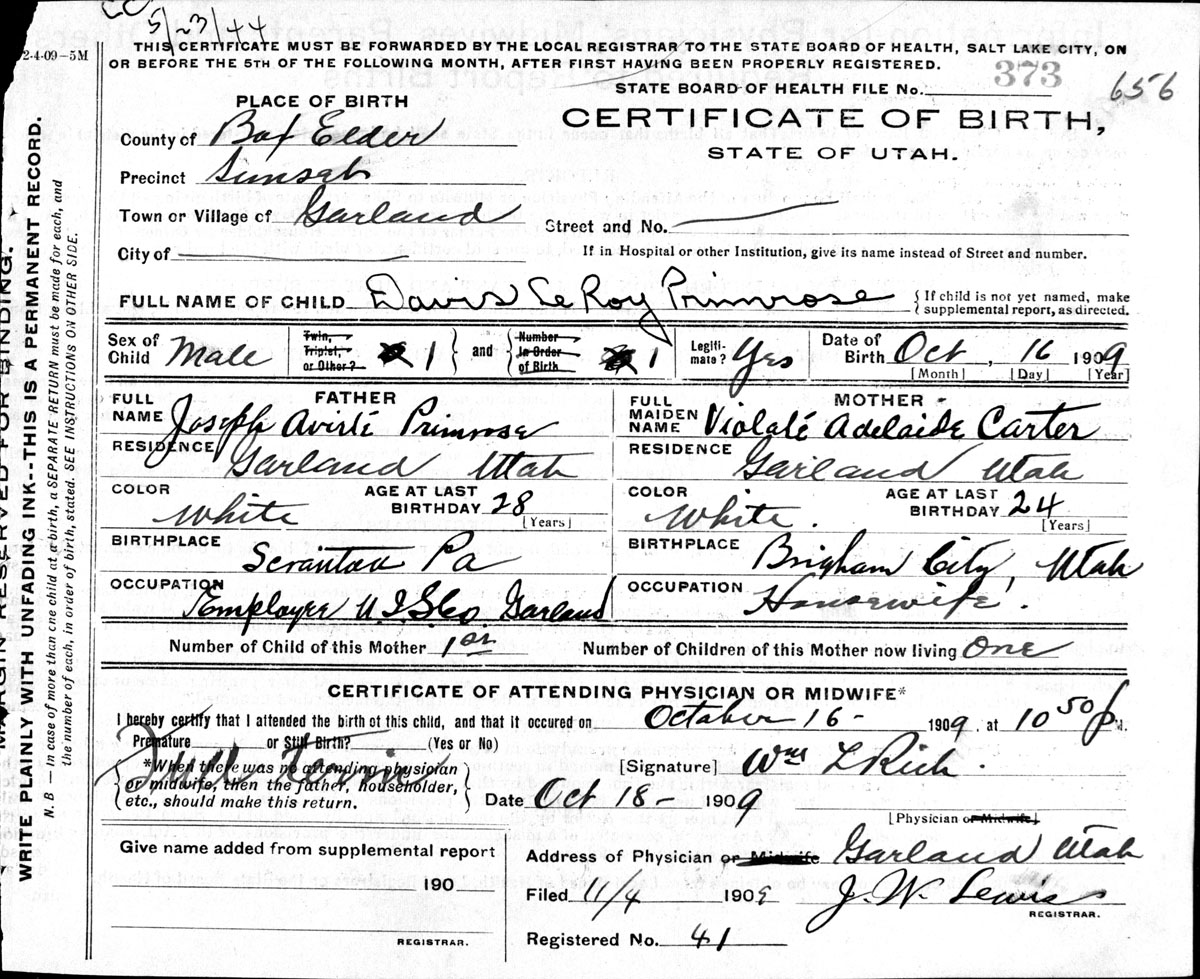 5/23/44
2-4-09-5M
THIS CERTIFICATE MUST BE FORWARDED BY THE LOCAL REGISTRAR TO THE STATE BOARD OF HEALTH, SALT LAKE CITY, ON
OR BEFORE THE 5TH OF THE FOLLOWING MONTH, AFTER FIRST HAVING BEEN PROPERLY REGISTERED.
STATE BOARD OF HEALTH FILE No. 373
656
PLACE OF BIRTH
CERTIFICATE OF BIRTH,
STATE OF UTAH.
County of Box Elder
Precinct Sunset
Town or Village of Garland
Street and No.
City of
If in Hospital or other Institution, give its name instead of Street and number.
FULL NAME OF CHILD Davis LeRoy Primrose { If child is not yet named, make
supplemental report, as directed.
Sex of Child Male Twin, Triplet, or Other? 1 } and { Number in Order of Birth 1 Legiti-mate? Yes Date of Birth Oct, 16 1909
[Month] [Day] [Year]
FATHER
FULL NAME Joseph Avirté Primrose
RESIDENCE Garland Utah
COLOR White AGE AT LAST BIRTHDAY 28
[Years]
BIRTHPLACE Scranton Pa
OCCUPATION Employee U.I.S.Co. Garland
MOTHER
FULL MAIDEN NAME Violaté Adelaide Carter
RESIDENCE Garland Utah
COLOR White. AGE AT LAST BIRTHDAY 24
[Years]
BIRTHPLACE Brigham City, Utah
OCCUPATION Housewife.
Number of Child of this Mother 1st Number of Children of this Mother now living One
CERTIFICATE OF ATTENDING PHYSICIAN OR MIDWIFE*
I hereby certify that I attended the birth of this child, and that it occured on October 16- 1909, at 10 50 P M.
Premature or Still Birth? (Yes or No)
Full Term
{ *When there was no attending physician
or midwife, then the father, householder,
etc., should make this return. }
[Signature] Wm L Rich.
Date Oct 18- 1909
[Physician or Midwife]
Give name added from supplemental report
190
REGISTRAR.
Address of Physician or Midwife Garland Utah
Filed 11/4 1909 J. W. Lewis
REGISTRAR.
Registered No. 41
MARGIN RESERVED FOR BINDING.
WRITE PLAINLY WITH UNFADING INK--THIS IS A PERMANENT RECORD.
N. B — In case of more than one child at a birth, a SEPARATE RETURN must be made for each, and
the number of each, in order of birth, stated. SEE INSTRUCTIONS ON OTHER SIDE.